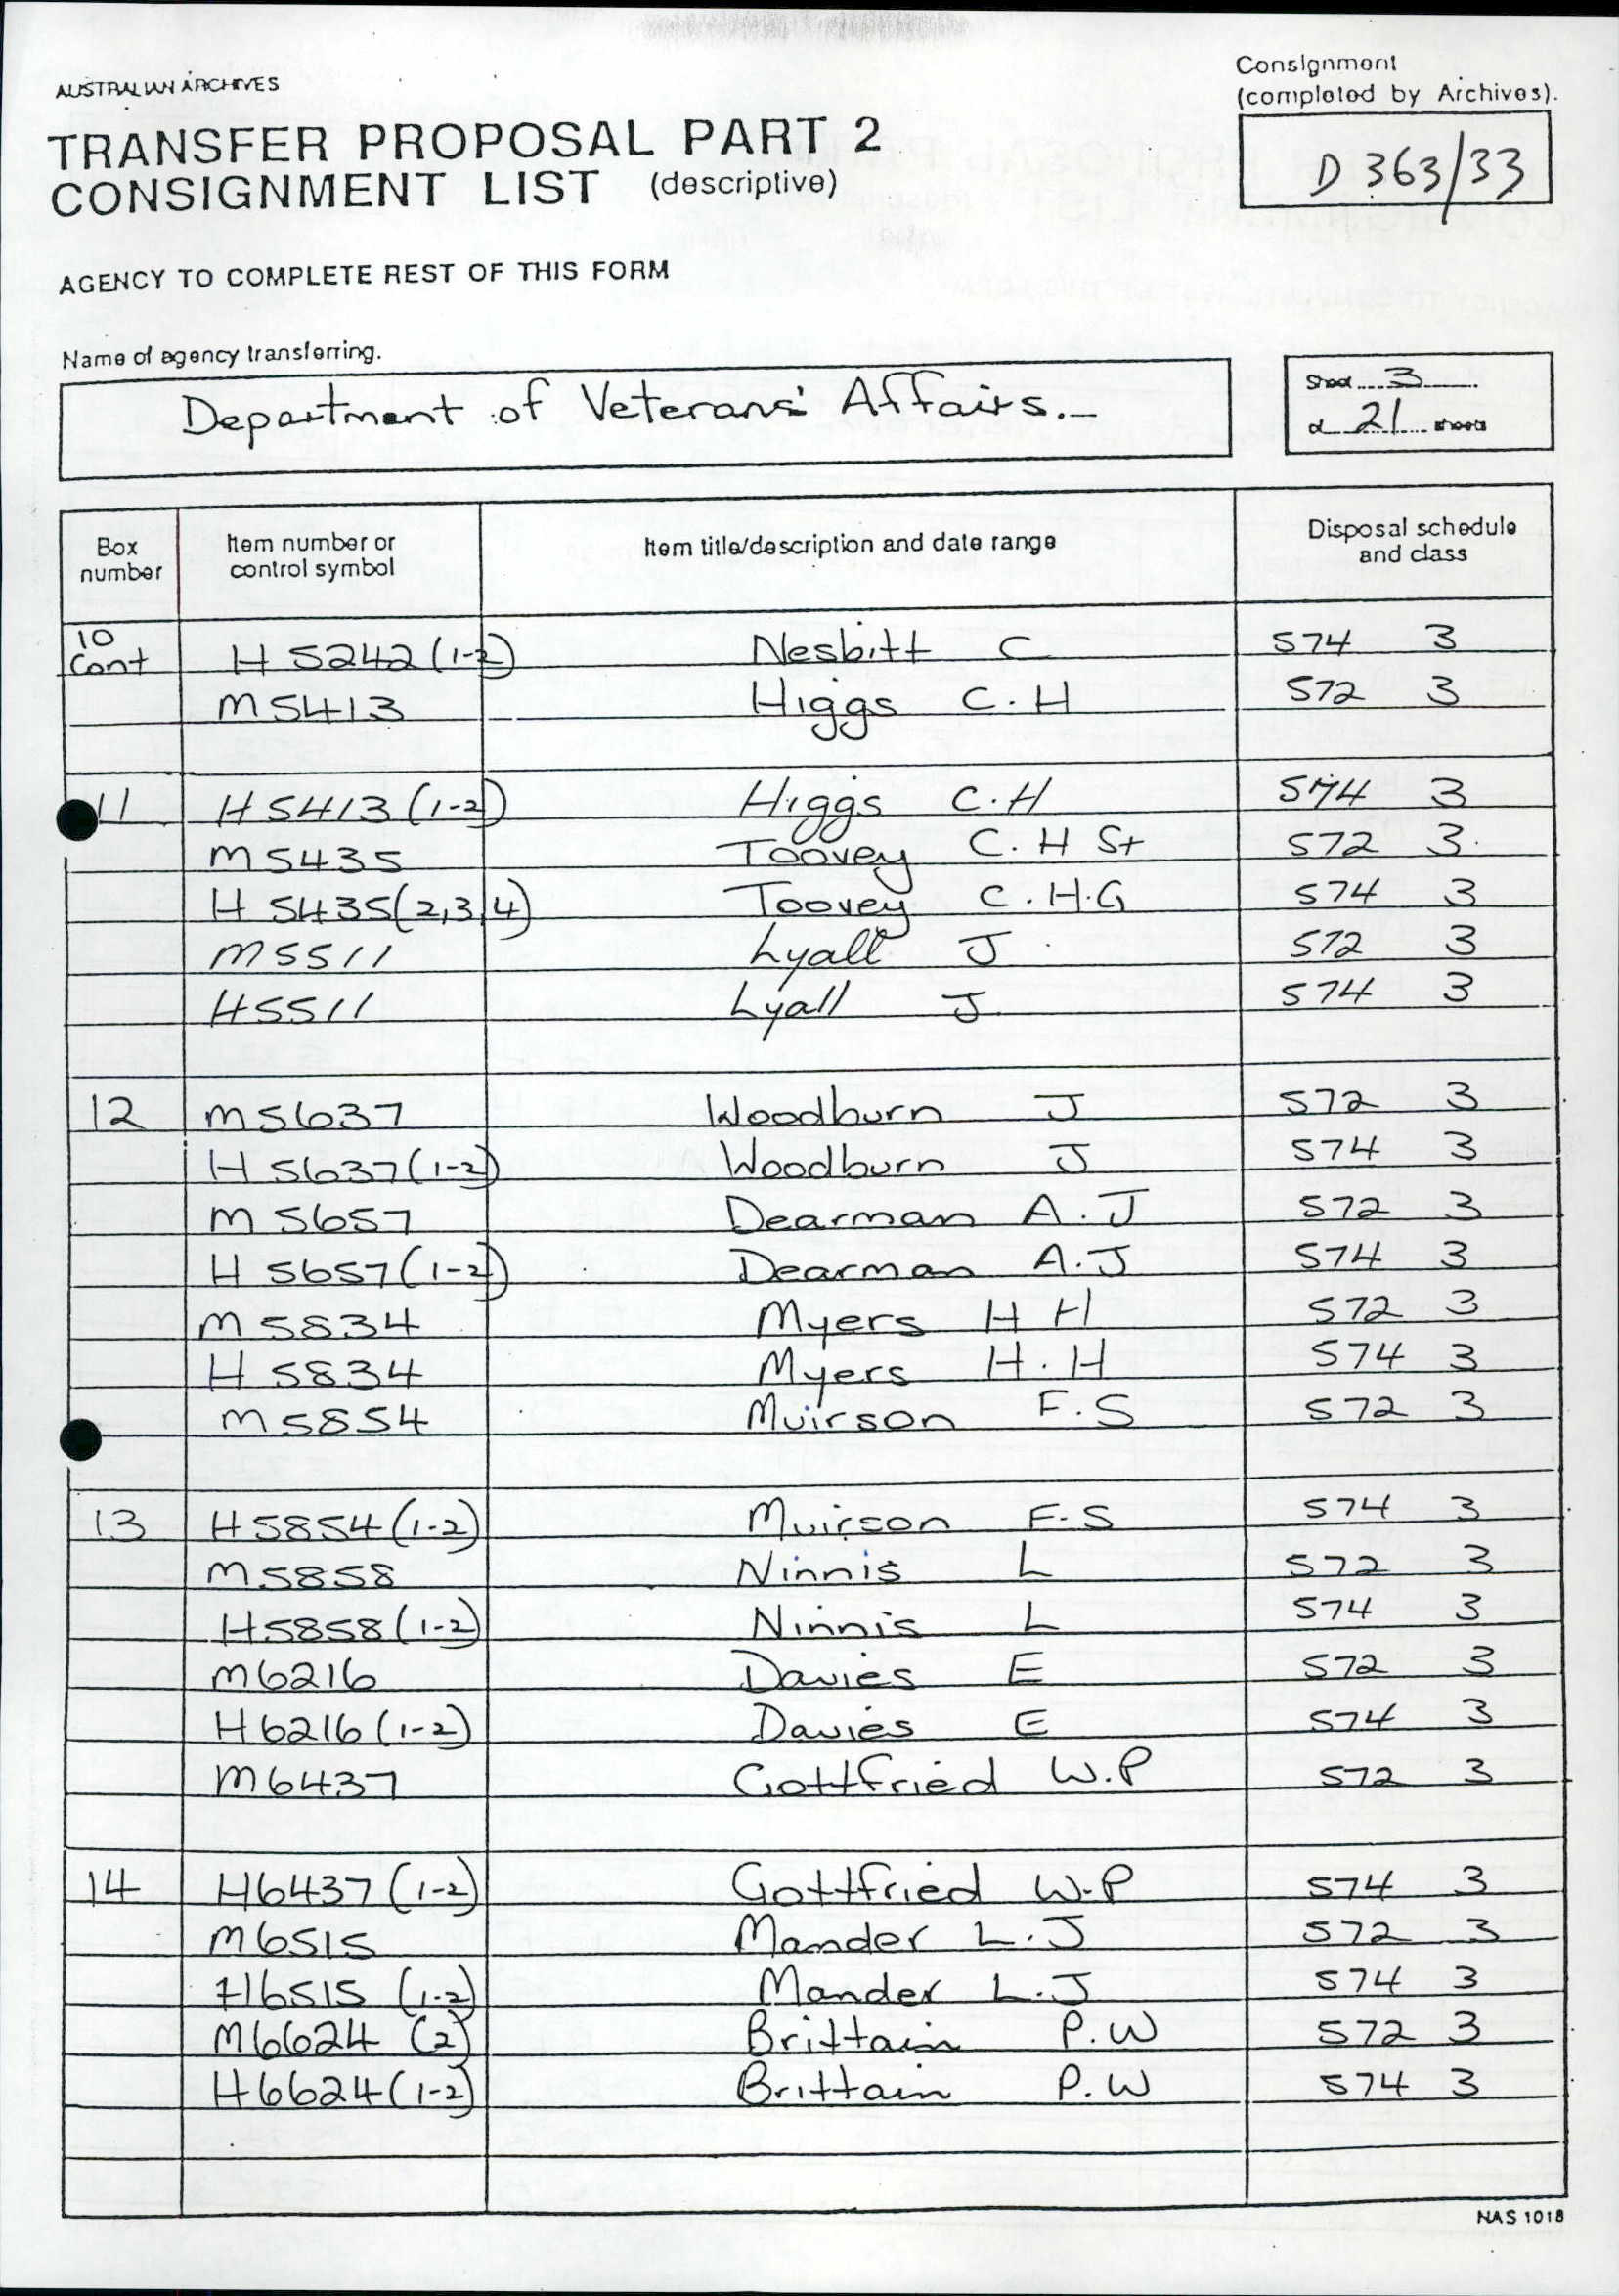 AUSTRALIAN ARCHIVES
Consignment
(completed by Archives).
TRANSFER PROPOSAL PART 2
CONSIGNMENT LIST (descriptive)
D 363/33
AGENCY TO COMPLETE REST OF THIS FORM
Name of agency transferring.
Department of Veterans' Affairs.-
Sheet 3
of 21 sheets
Box number | Item number or control symbol | Item title/description and date range | Disposal schedule and class
10 Cont | H 5242 (1-2) | Nesbitt C | 574 3
M5413 | Higgs C.H | 572 3
11 | H 5413 (1-2) | Higgs C.H | 574 3
M5435 | Toovey C.H St | 572 3
H 5435(2,3,4) | Toovey C.H.G | 574 3
M5511 | Lyall J | 572 3
H5511 | Lyall J | 574 3
12 | M5637 | Woodburn J | 572 3
H 5637(1-2) | Woodburn J | 574 3
M 5657 | Dearman A.J | 572 3
H 5657(1-2) | Dearman A.J | 574 3
M 5834 | Myers H H | 572 3
H 5834 | Myers H.H | 574 3
M5854 | Muirson F.S | 572 3
13 | H5854(1-2) | Muirson F.S | 574 3
M5858 | Ninnis L | 572 3
H5858(1-2) | Ninnis L | 574 3
M6216 | Davies E | 572 3
H6216(1-2) | Davies E | 574 3
M6437 | Gottfried W.P | 572 3
14 | H6437(1-2) | Gottfried W.P | 574 3
M6515 | Mander L.J | 572 3
H6515 (1-2) | Mander L.J | 574 3
M6624 (2) | Brittain P.W | 572 3
H6624(1-2) | Brittain P.W | 574 3
NAS 1018